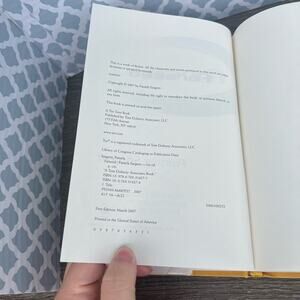 This is a work of fiction. All the characters and events portrayed in this novel are either
fictitious or are used fictitiously.
Copyright © 2007 by Pamela Sargent
All rights reserved, including the right to reproduce this book, or portions thereof, in
any form.
This book is printed on acid-free paper.
A Tor Teen Book
Published by Tom Doherty Associates, LLC
175 Fifth Avenue
New York, NY 10010
Tor® is a registered trademark of Tom Doherty Associates, LLC.
Library of Congress Cataloging-in-Publication Data
Sargent, Pamela.
Farseed / Pamela Sargent.
"A Tom Doherty Associates book."
2007
First Edition: March 2007
Printed in the United States of America
0 9 8 7 6 5 4 3 2 1